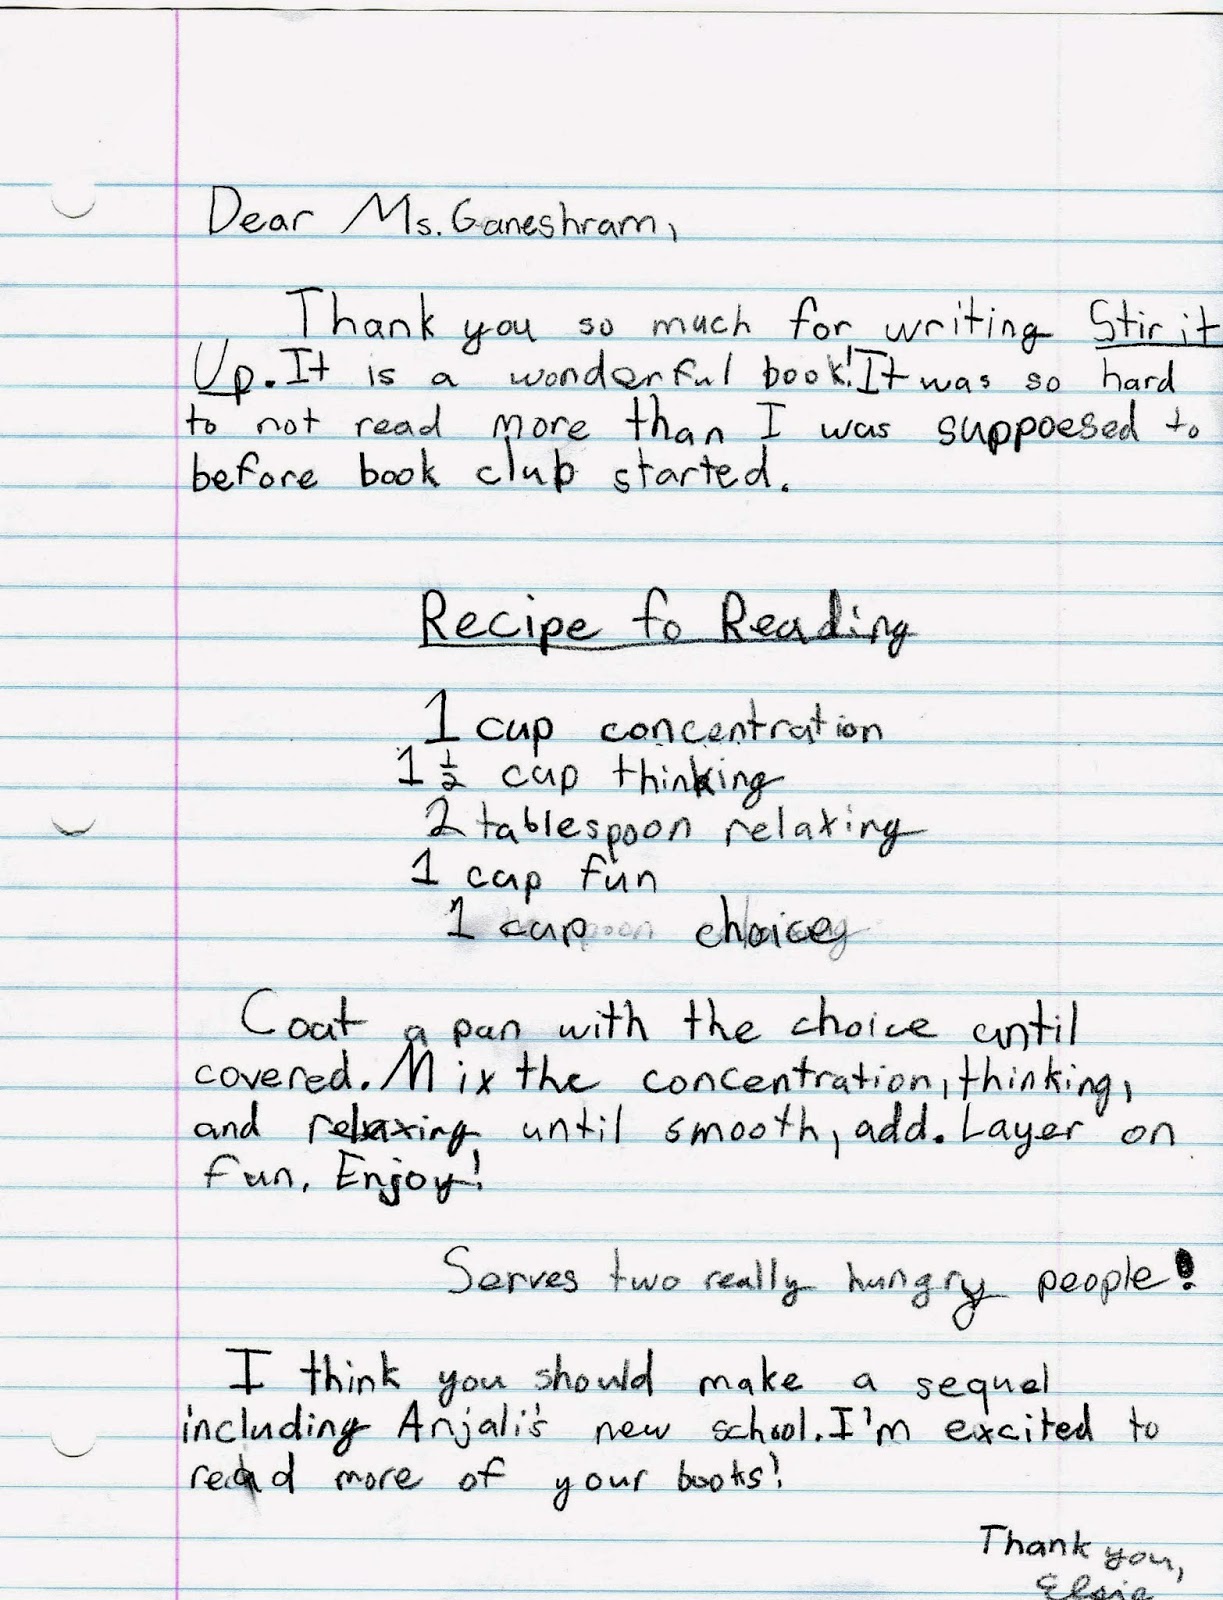 Dear Ms. Ganeshram,
Thank you so much for writing Stir it
Up. It is a wonderful book! It was so hard
to not read more than I was suppoesed to
before book club started.
Recipe fo Reading
1 cup concentration
1 1/2 cup thinking
2 tablespoon relaxing
1 cup fun
1 cup choice
Coat a pan with the choice until
covered. Mix the concentration, thinking,
and relaxing until smooth, add. Layer on
fun. Enjoy!
Serves two really hungry people!
I think you should make a sequel
including Anjali's new school. I'm excited to
read more of your books!
Thank you,
Elsie